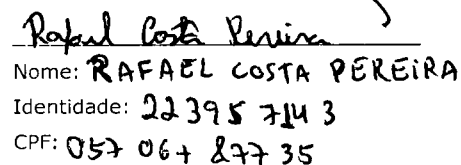 Rafael Costa Pereira
Nome: RAFAEL COSTA PEREIRA
Identidade: 22395 714 3
CPF: 057 067 877 35